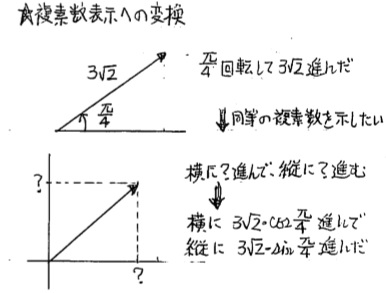 ☆複素数表示への変換
3√2
π/4
π/4 回転して 3√2 進んだ
⇓同等の複素数を示したい
横に?進んで、縦に?進む
?
⇓
横に 3√2・cos π/4 進んで
縦に 3√2・sin π/4 進んだ
?